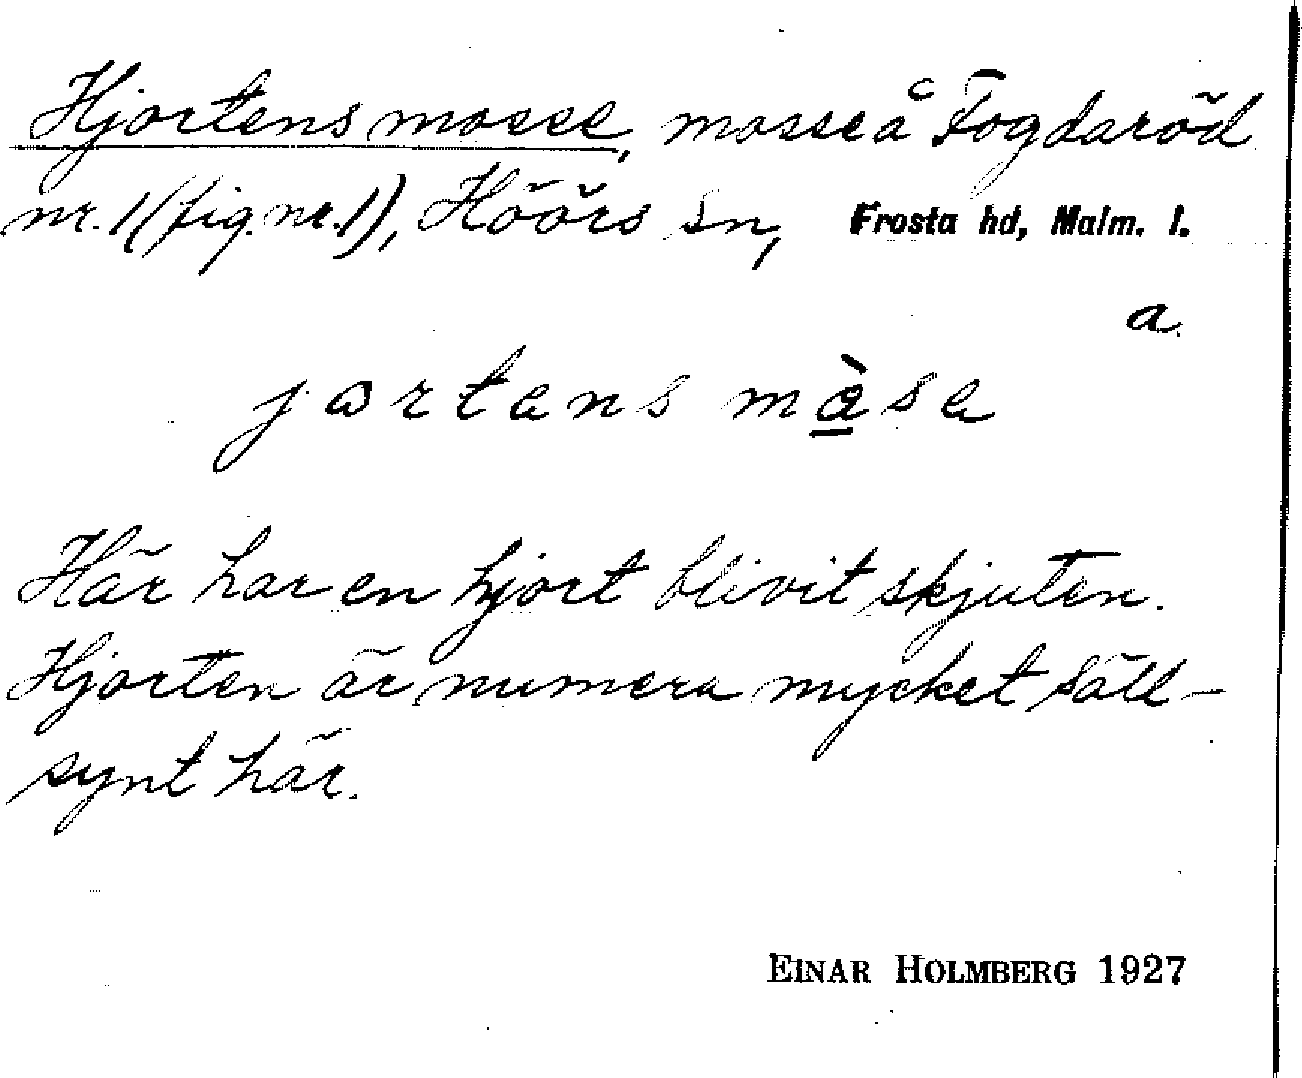 Hjortens mosse, mosse å Fogdaröd
nr. 1 (fig. nr. 1), Höörs sn, Frosta hd, Malm. l.
a.
jortens mòse
Här har en hjort blivit skjuten.
Hjorten är numera mycket säll-
synt här.
EINAR HOLMBERG 1927